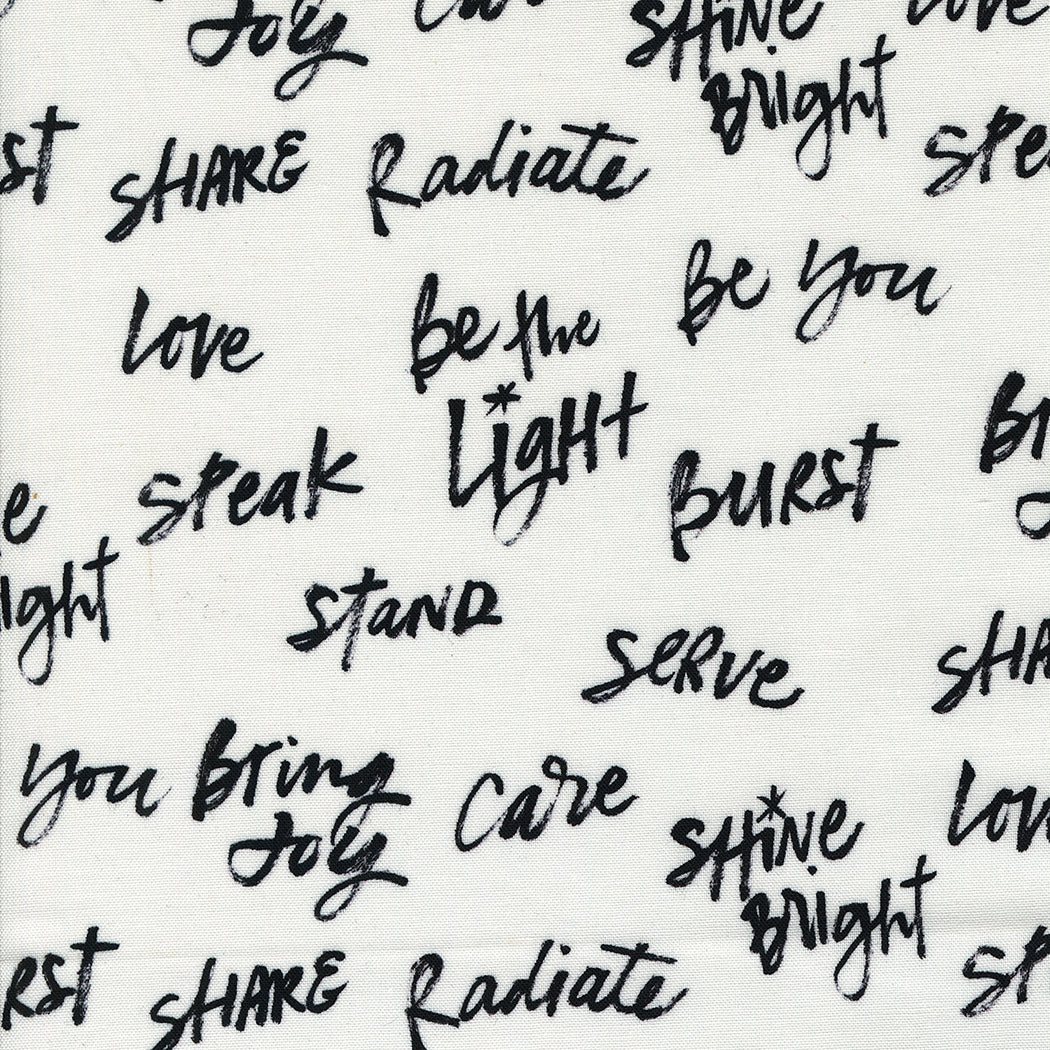 Joy Care SHINE Love
Bright
st SHARE Radiate Spe
Love Be the Be You
Light Br
e Speak Burst
ight Stand Serve SHA
You Bring Care SHINE Lov
Joy Bright
RST SHARE Radiate Sp